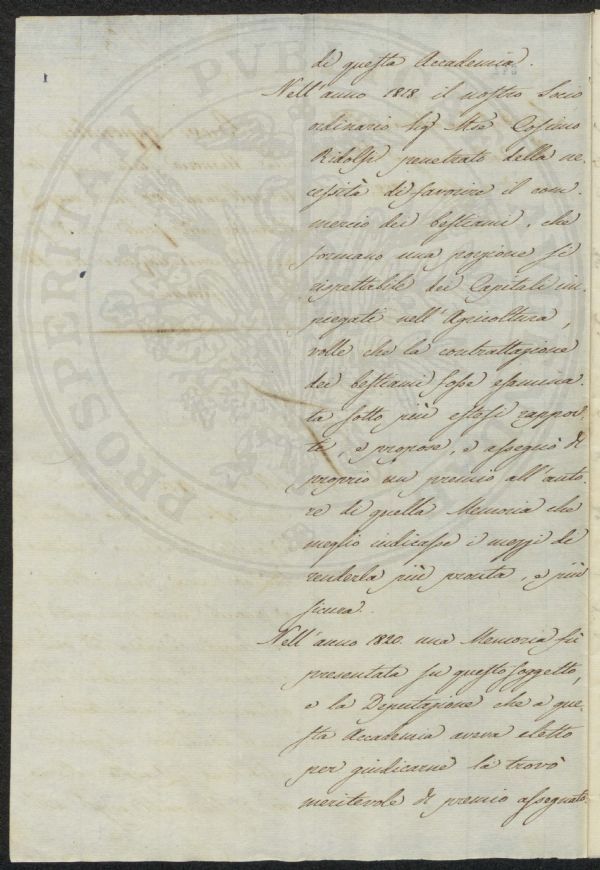 di questa Accademia.
Nell'anno 1818. il nostro Socio
ordinario Sig. Mse Cosimo
Ridolfi penetrato della ne-
cessità di favorire il com-
mercio dei bestiami, che
formano una porzione sì
rispettabile dei Capitali im-
piegati nell'Agricoltura,
volle che la contrattazione
dei bestiami fosse esamina-
ta sotto più estesi rappor-
ti, e propose, e assegnò di
proprio un premio all'auto-
re di quella Memoria che
meglio indicasse i mezzi di
renderla più pronta, e più
sicura.
Nell'anno 1820. una Memoria fù
presentata su questo soggetto,
e la Deputazione che a que-
sta Accademia aveva eletto
per giudicarne la trovò
meritevole di premio assegnato
PROSPERITATI PVB